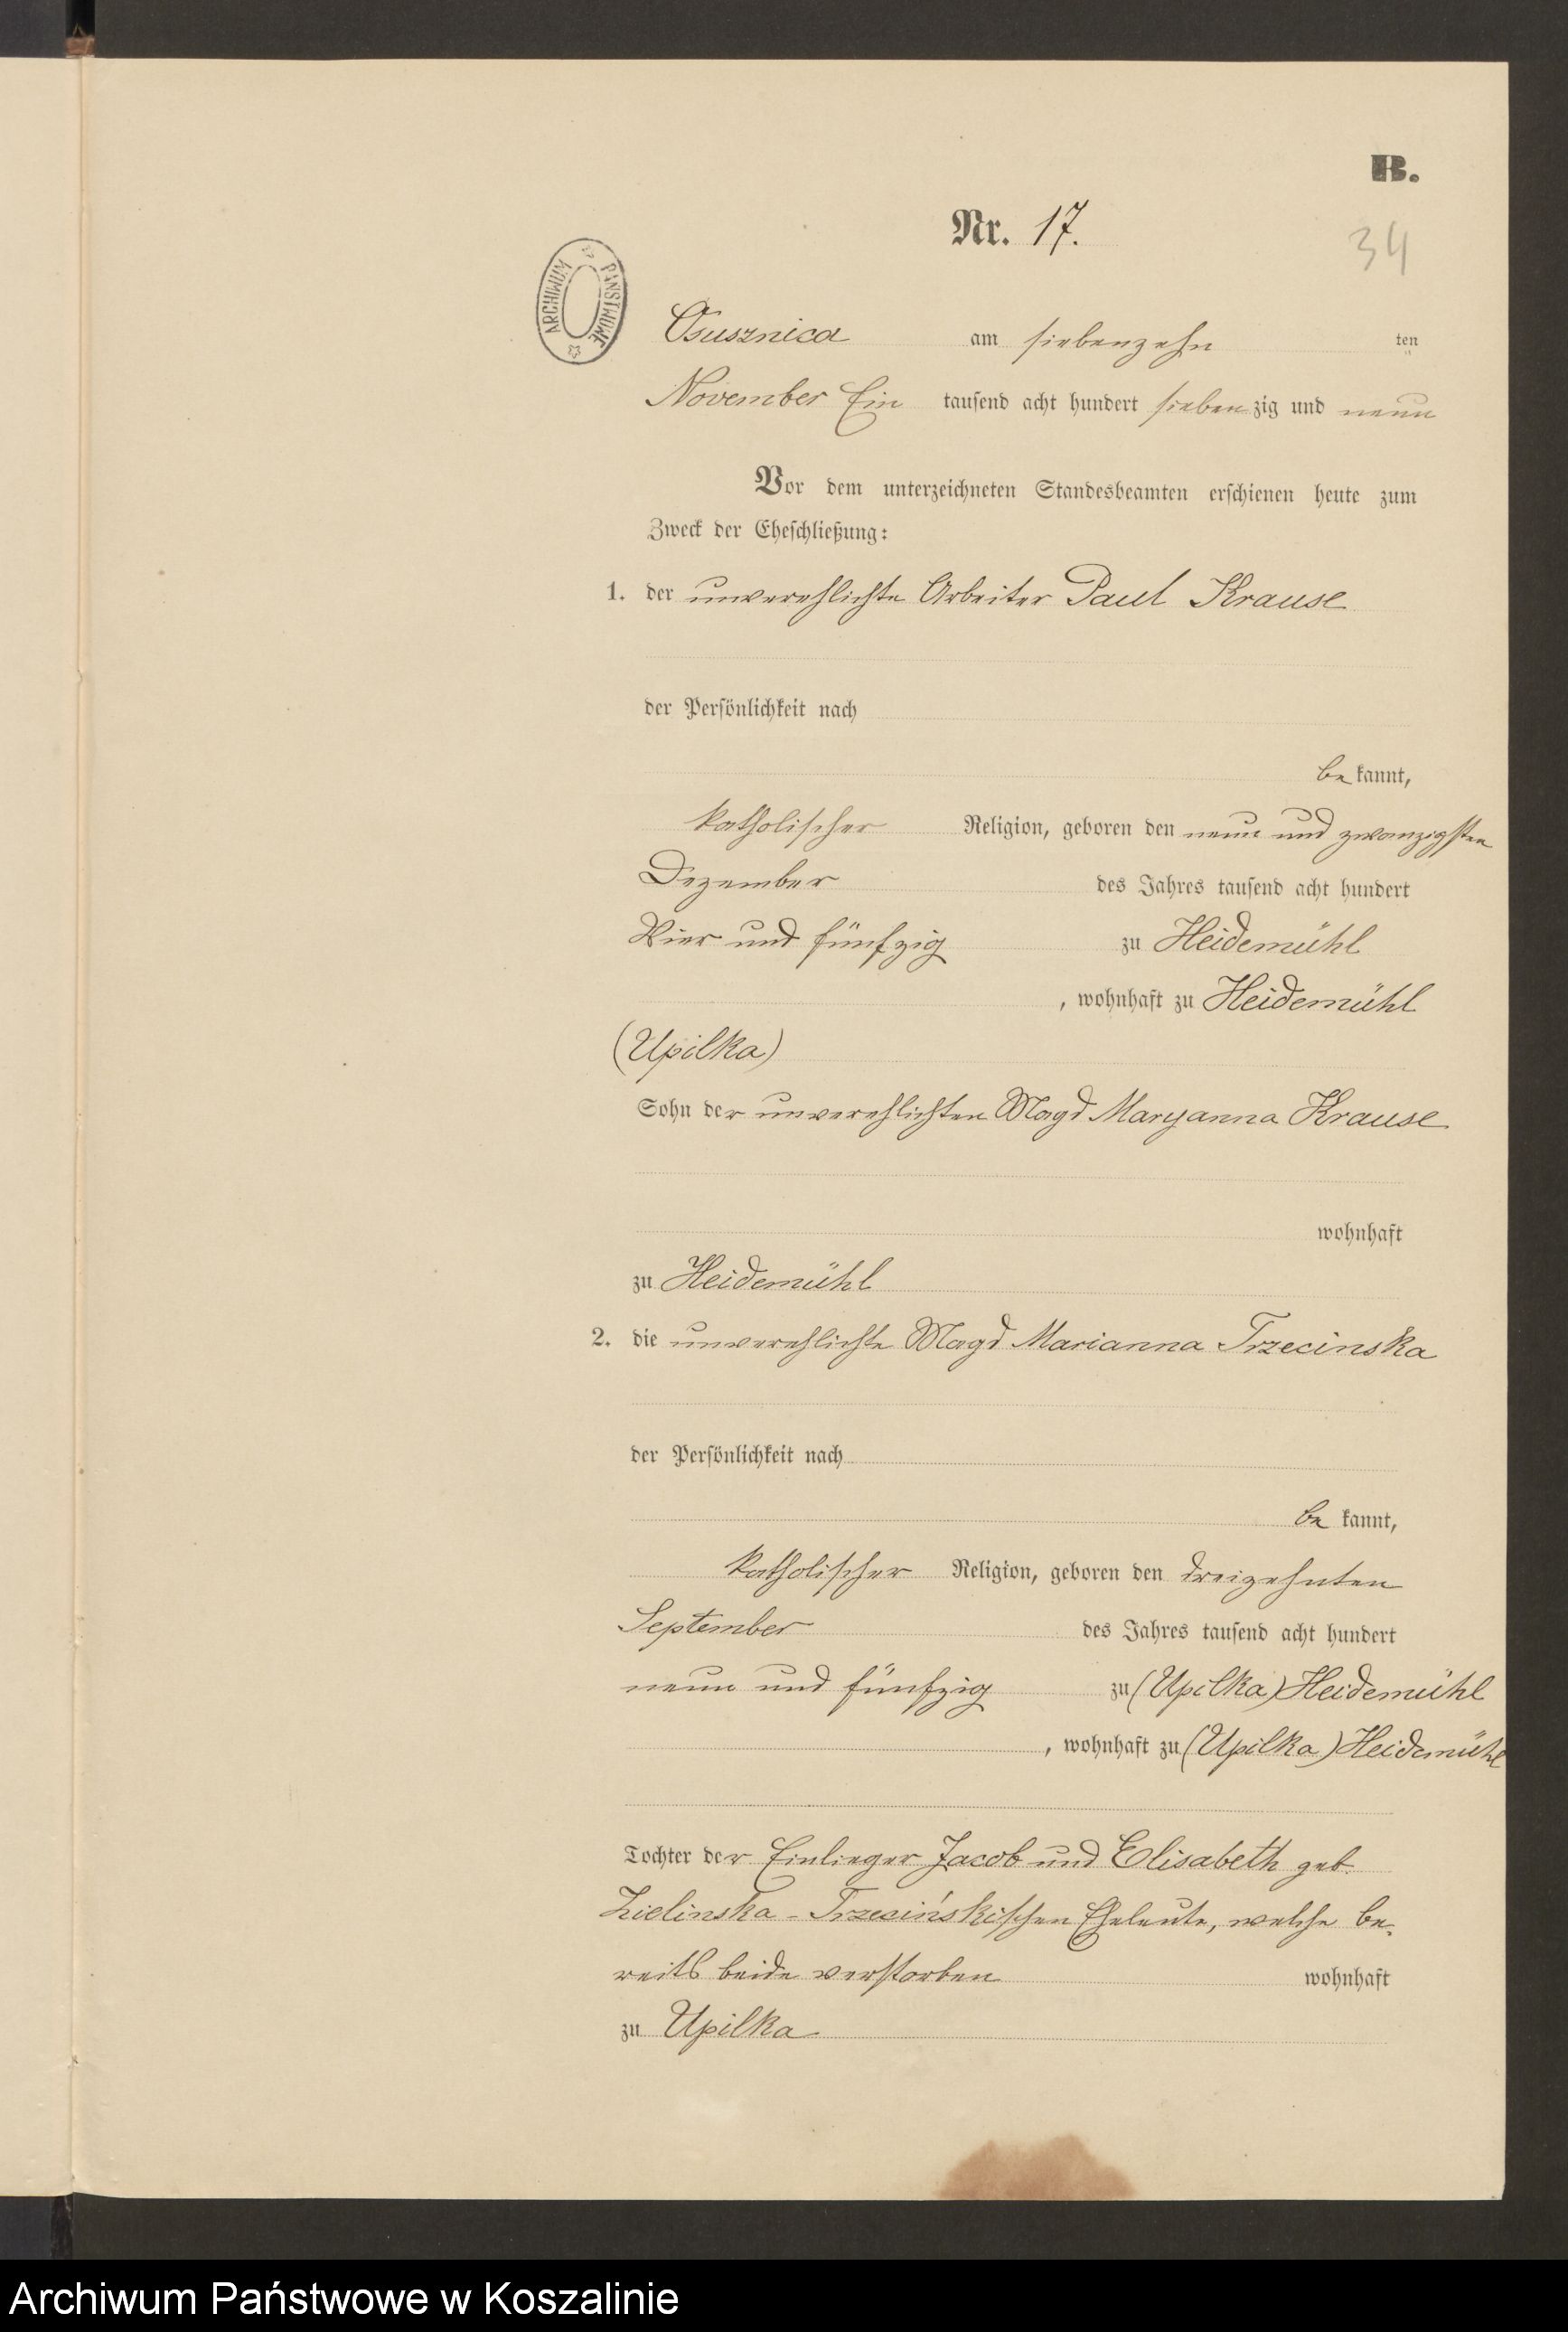 B.
Nr. 17.
34
ARCHIWUM PAŃSTWOWE
Osusznica am siebenzehn ten
November Ein tausend acht hundert siebenzig und neun
Vor dem unterzeichneten Standesbeamten erschienen heute zum
Zweck der Eheschließung:
1. der unverehlichte Arbeiter Paul Krause
der Persönlichkeit nach
be kannt,
katholischer Religion, geboren den neun und zwanzigsten
Dezember des Jahres tausend acht hundert
Vier und fünfzig zu Heidemühl
, wohnhaft zu Heidemühl
(Upilka)
Sohn der unverehlichten Magd Maryanna Krause
wohnhaft
zu Heidemühl
2. die unverehlichte Magd Marianna Trzecinska
der Persönlichkeit nach
be kannt,
katholischer Religion, geboren den dreizehnten
September des Jahres tausend acht hundert
neun und fünfzig zu (Upilka) Heidemühl
, wohnhaft zu (Upilka) Heidemühl
Tochter der Einlieger Jacob und Elisabeth geb.
Zielinska - Trzecińskischen Eheleute, welche be-
reits beide verstorben wohnhaft
zu Upilka
Archiwum Państwowe w Koszalinie